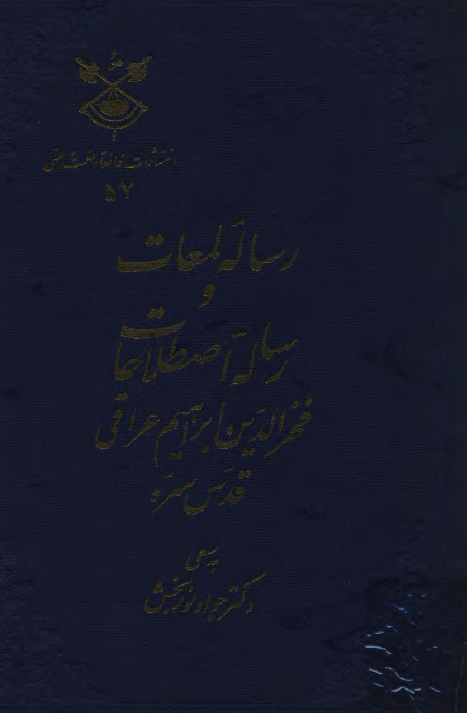 انتشارات خانقاه نعمت اللهی
۵۷
رسالهٔ لمعات
و
رسالهٔ اصطلاحات
فخرالدین ابراهیم عراقی
قدس سره
به سعی
دکتر جواد نوربخش